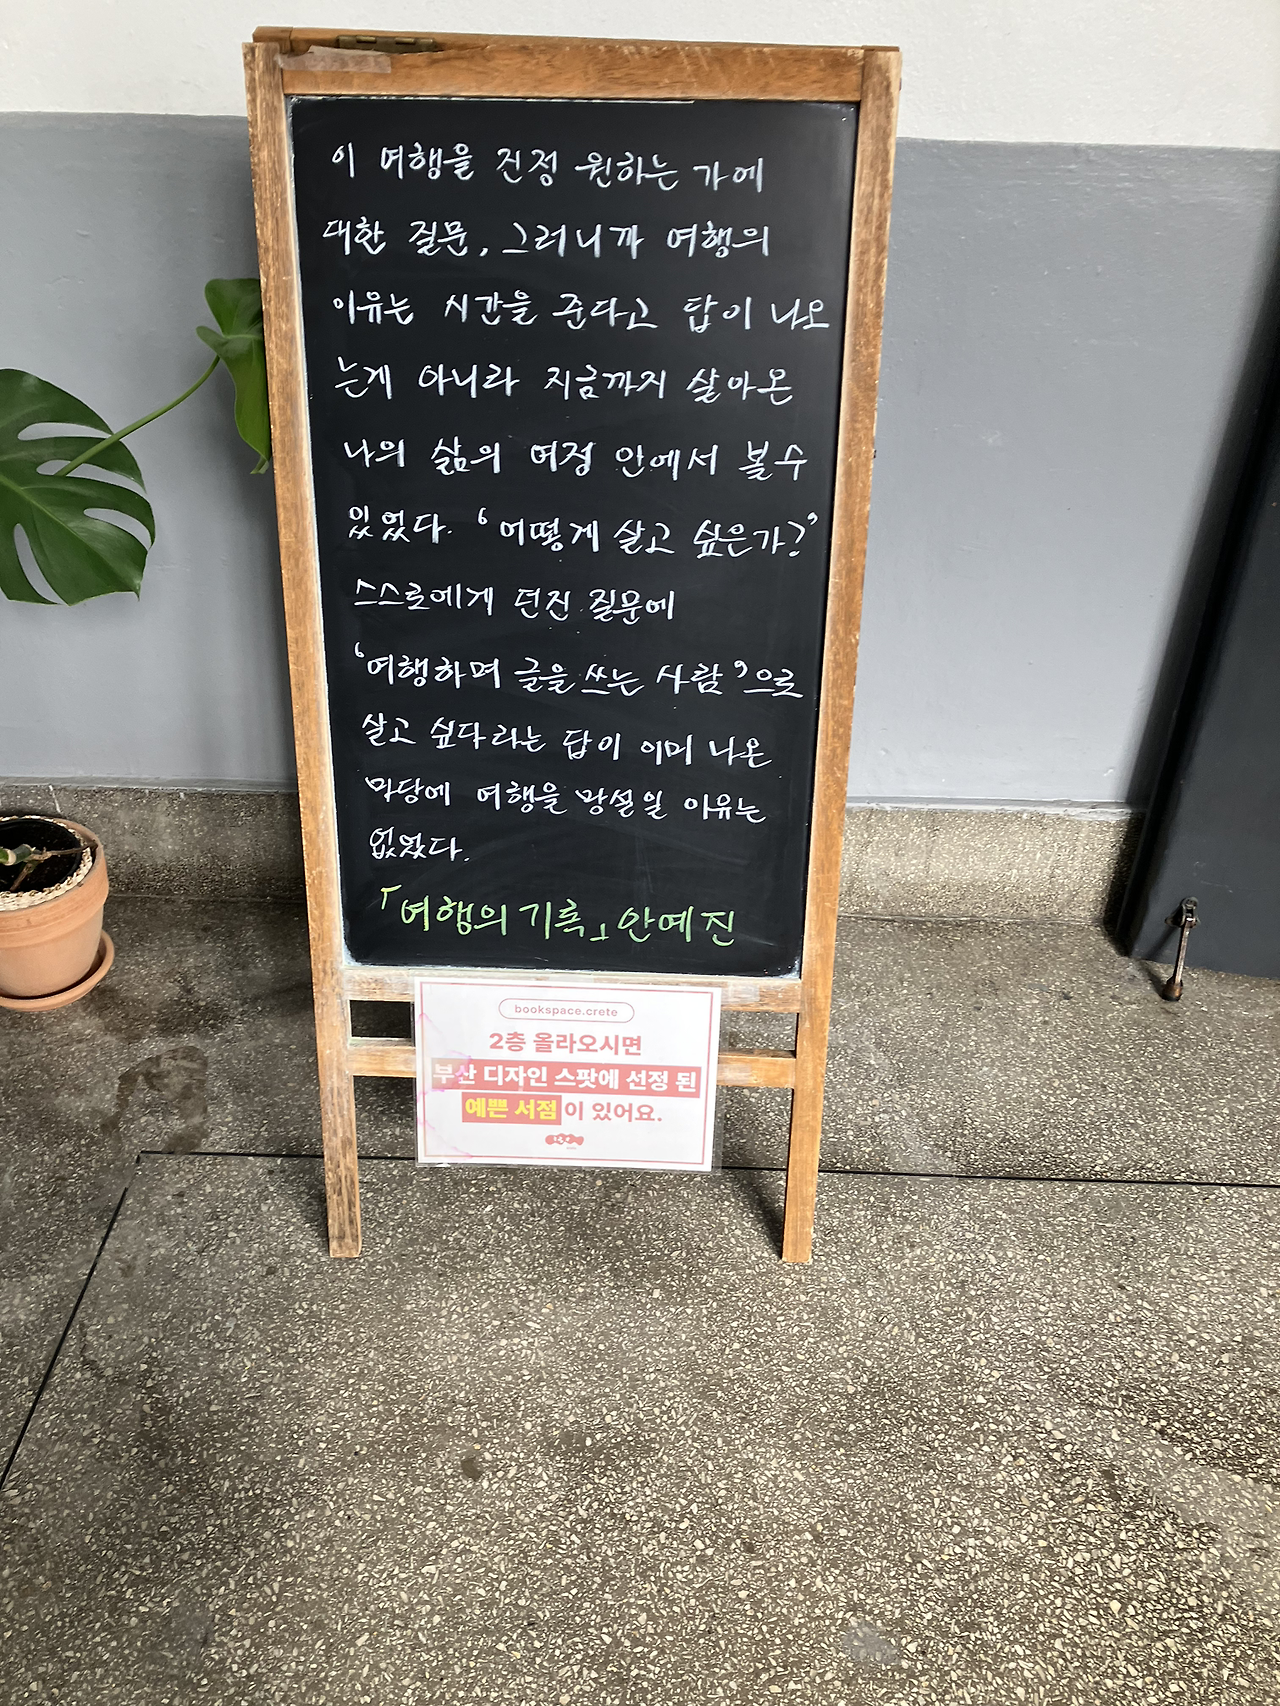 이 여행을 진정 원하는 가에
대한 질문, 그러니까 여행의
이유는 시간을 준다고 답이 나오
는게 아니라 지금까지 살아온
나의 삶의 여정 안에서 볼수
있었다. '어떻게 살고 싶은가?'
스스로에게 던진 질문에
'여행하며 글을 쓰는 사람'으로
살고 싶다라는 답이 이미 나온
마당에 여행을 망설일 이유는
없었다.
「여행의 기록」 안예진
bookspace.crete
2층 올라오시면
부산 디자인 스팟에 선정 된
예쁜 서점이 있어요.